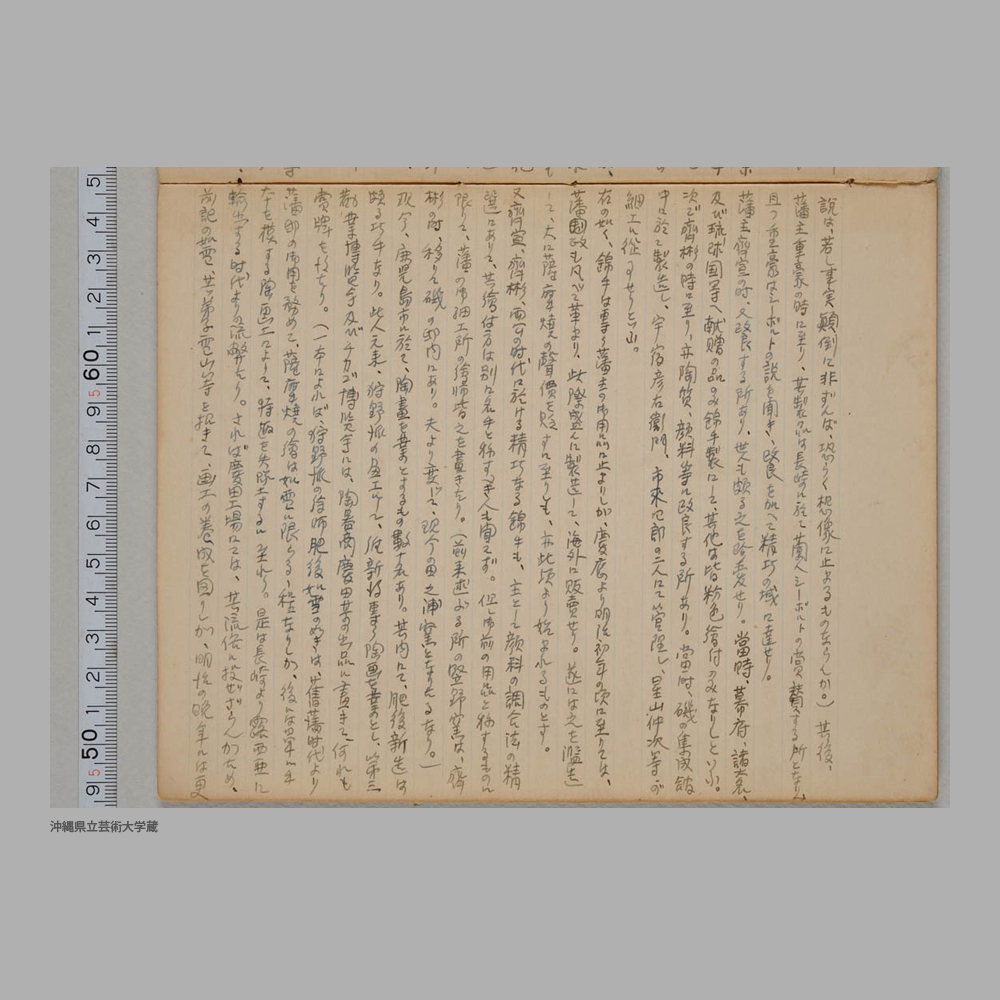 説は、若し事実顛倒に非ずんば、恐らく想像に止まるものならんか）其後、
藩主重豪の時に至り、其製品は長崎に於て蘭人シーボルトの賞賛する所となり
且つ重豪はシーボルトの説を聞き、改良を加へて精巧の域に達せり。
藩主齊宣の時、又改良する所あり、世人も頗る之を珍愛せり。當時、幕府、諸大名、
及び琉球国等へ献贈の品のみ錦手製にして、其他は皆粉色繪付のみなりしといふ。
次で齊彬の時に至り、亦陶質、顔料等に改良する所あり。當时、磯の集成舘
中に於て製造し、宇宿彦右衛門、市来四郎の二人にて管理し、星山仲次等が
細工に従事せりと云ふ。
右の如く、錦手は専ら藩主の御用品に止まりしが、慶応より明治初年の頃に至りては、
藩国政も凡べて革まり、此際盛んに製造して、海外に販賣せり。遂には之を濫造
して、大に薩摩焼の聲價を貶すに至りしも、亦此頃より始まれるものとす。
又齊宣、齊彬、両公の时代に於ける精巧なる錦手も、主として顔料の調合法の精
選にありて、其繪付方は別に名手と称すべき人も聞えず。但し御前の用品と称するものに
限りて、藩の御細工所の繪師宿之を畫きたり。（前来述ぶる所の竪野窯は、齊
彬の时、移りて磯の邸内にあり。夫より変じて、現今の田之浦窯となりたるなり。）
現今、鹿児島市に於て、陶畫を業とするもの數十名あり。其内にて、肥後新造は
頗る巧手なり。此人元来、狩野派の畫工にて、維新後専ら陶画を業とし、第三
勧業博覧会及びチカゴ博覧会には、陶器商慶田某の出品に畫きて、何れも
賞牌を得たり。（一本によれば狩野派の繪師肥後如雪のめぎは舊藩时代より
藩邸の御用を務めて、薩摩焼の繪は如雪に限らる程なりしが、後には
を模する陶画工によりて、特色を失墜するに至れり。是は長崎より露西亜に
輸出する时代よりの流弊なり。されば慶田工場にては、其流俗に投ぜざらんがため、
前記の如雪、其弟子雪山等を招きて、画工の養成を図りしが、明治の晩年には更
沖縄県立芸術大学蔵